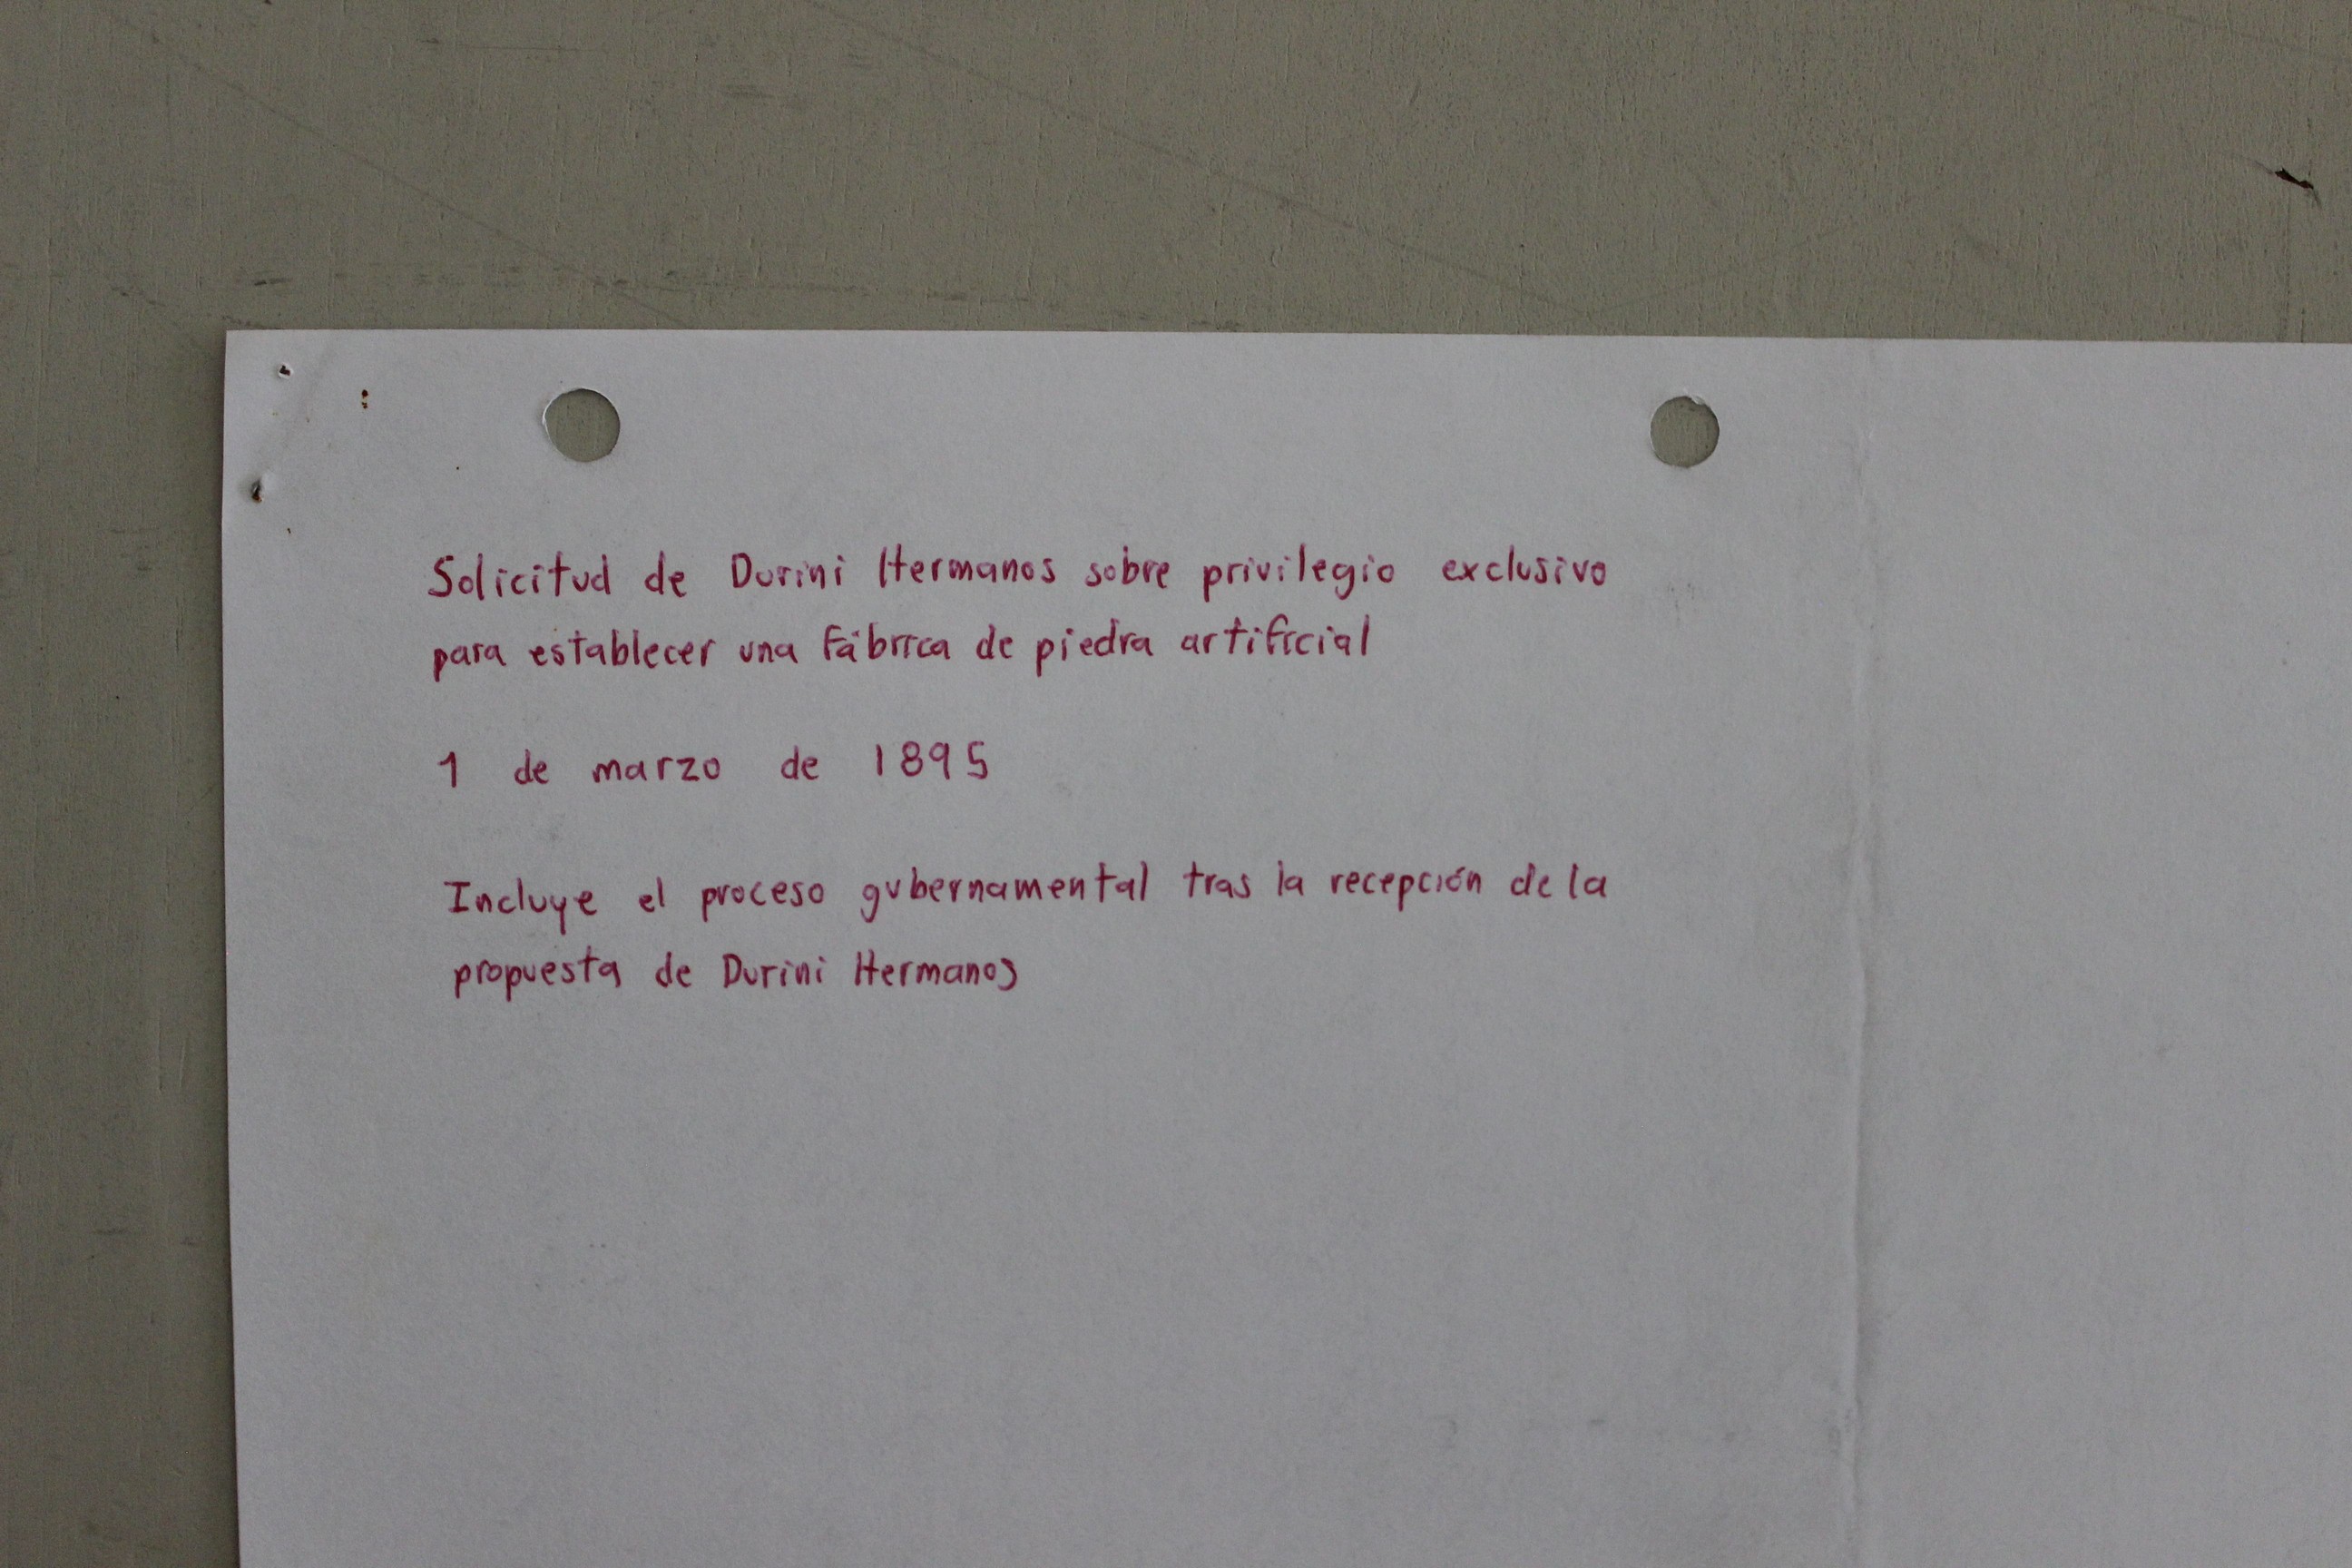 Solicitud de Durini Hermanos sobre privilegio exclusivo
para establecer una Fábrica de piedra artificial
1 de marzo de 1895
Incluye el proceso gubernamental tras la recepción de la
propuesta de Durini Hermanos